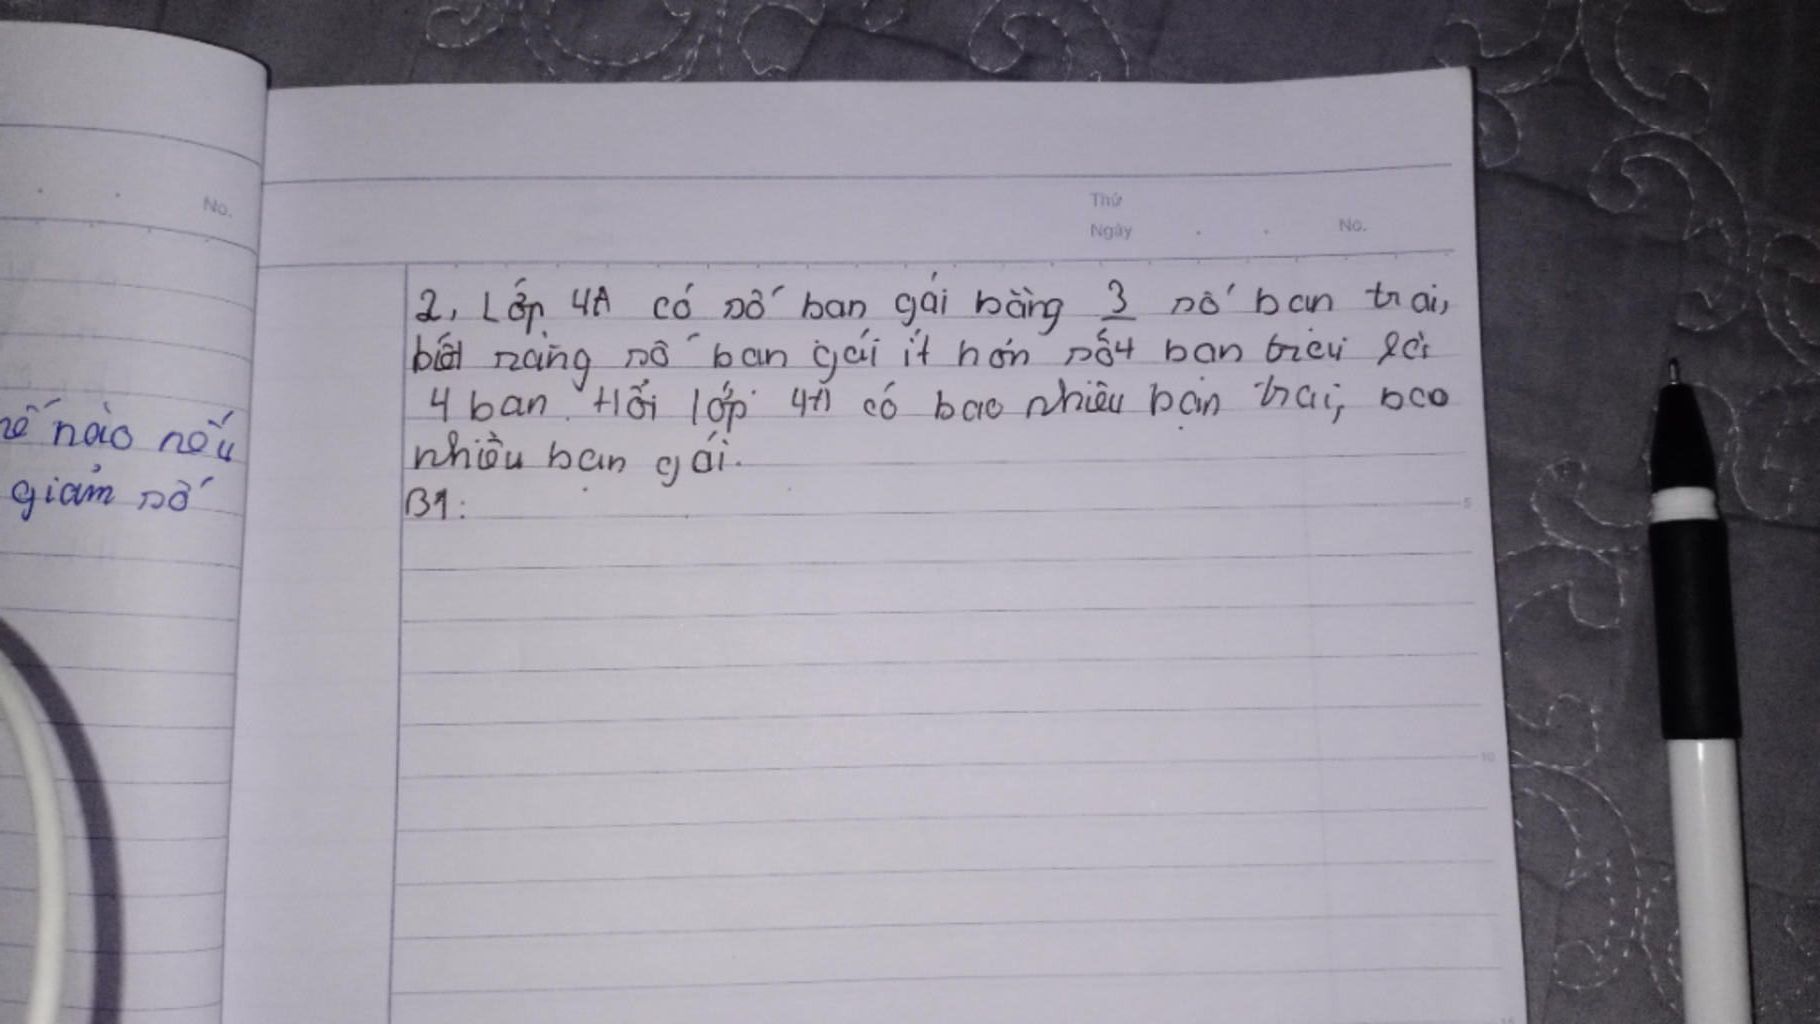 Thứ
No.
Ngày . . No.
2, Lớp 4A có số ban gái bằng 3/4 số ban trai,
biết rằng số ban gái ít hơn số ban trai là
4 ban. Hỏi lớp 4A có bao nhiêu bạn trai, bao
nhiêu bạn gái.
B1:
nào nếu
giảm số
5
10